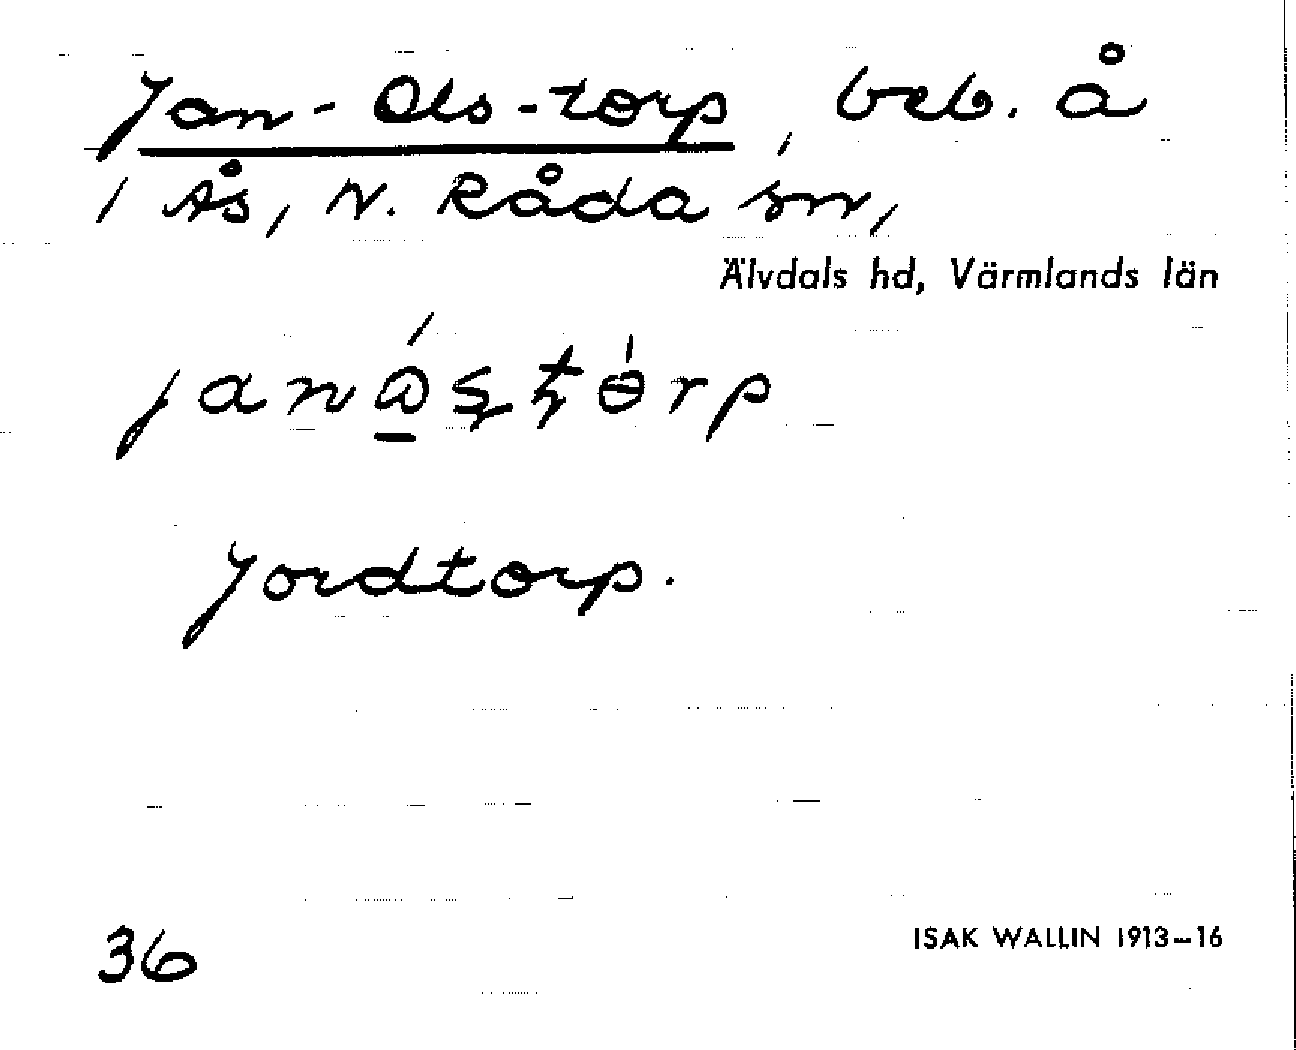 Jan-Ols-torp, beb. å
i Ås, N. Råda sn,
Älvdals hd, Värmlands län
Jordtorp.
36
ISAK WALLIN 1913–16